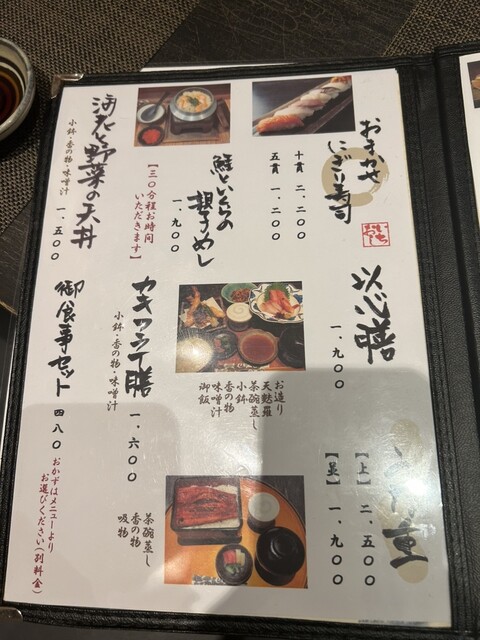 おまかせ
にぎり寿司
十貫 二、二〇〇
五貫 一、二〇〇
鮭いくらの
一、九〇〇
【三〇分程お時間
いただきます】
野菜の天丼
小鉢・香の物・味噌汁
一、五〇〇
以心膳
一、九〇〇
お造り
天麩羅
茶碗蒸し
小鉢
香の物
味噌汁
御飯
カキフライ膳
小鉢・香の物・味噌汁
一、六〇〇
御食事セット
四八〇
おかずはメニューより
お選びください（別料金）
重
【上】 二、五〇〇
【並】 一、九〇〇
茶碗蒸し
香の物
吸物